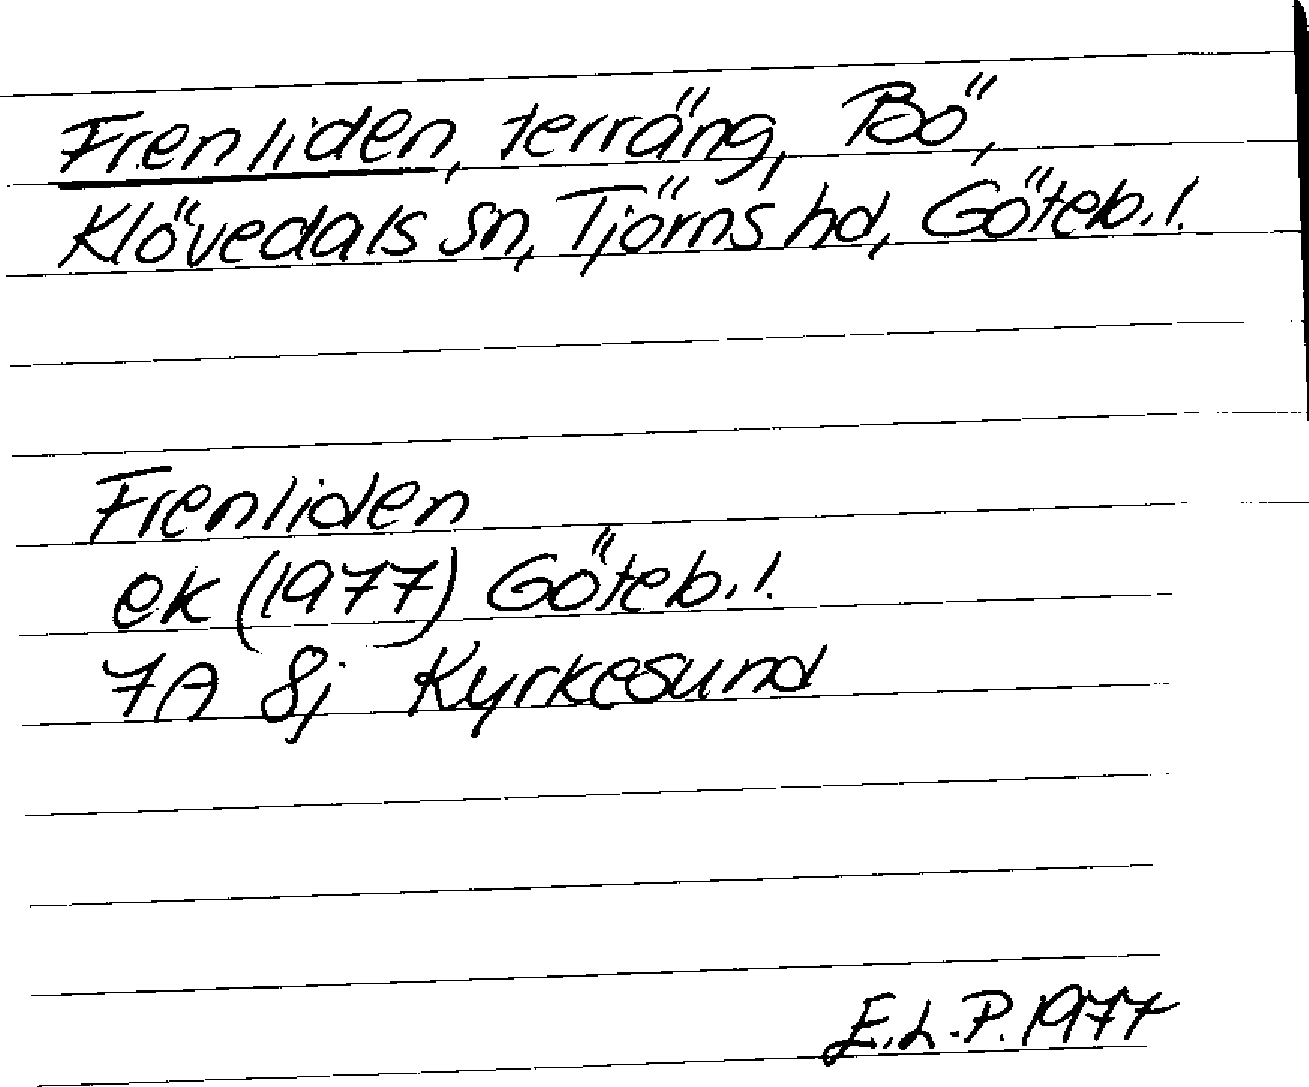 Frenliden, terräng, Bö,
Klövedals sn, Tjörns hd, Göteb.l.
Frenliden
ek (1977) Göteb.l.
7A 8j Kyrkesund
E.L.P. 1977